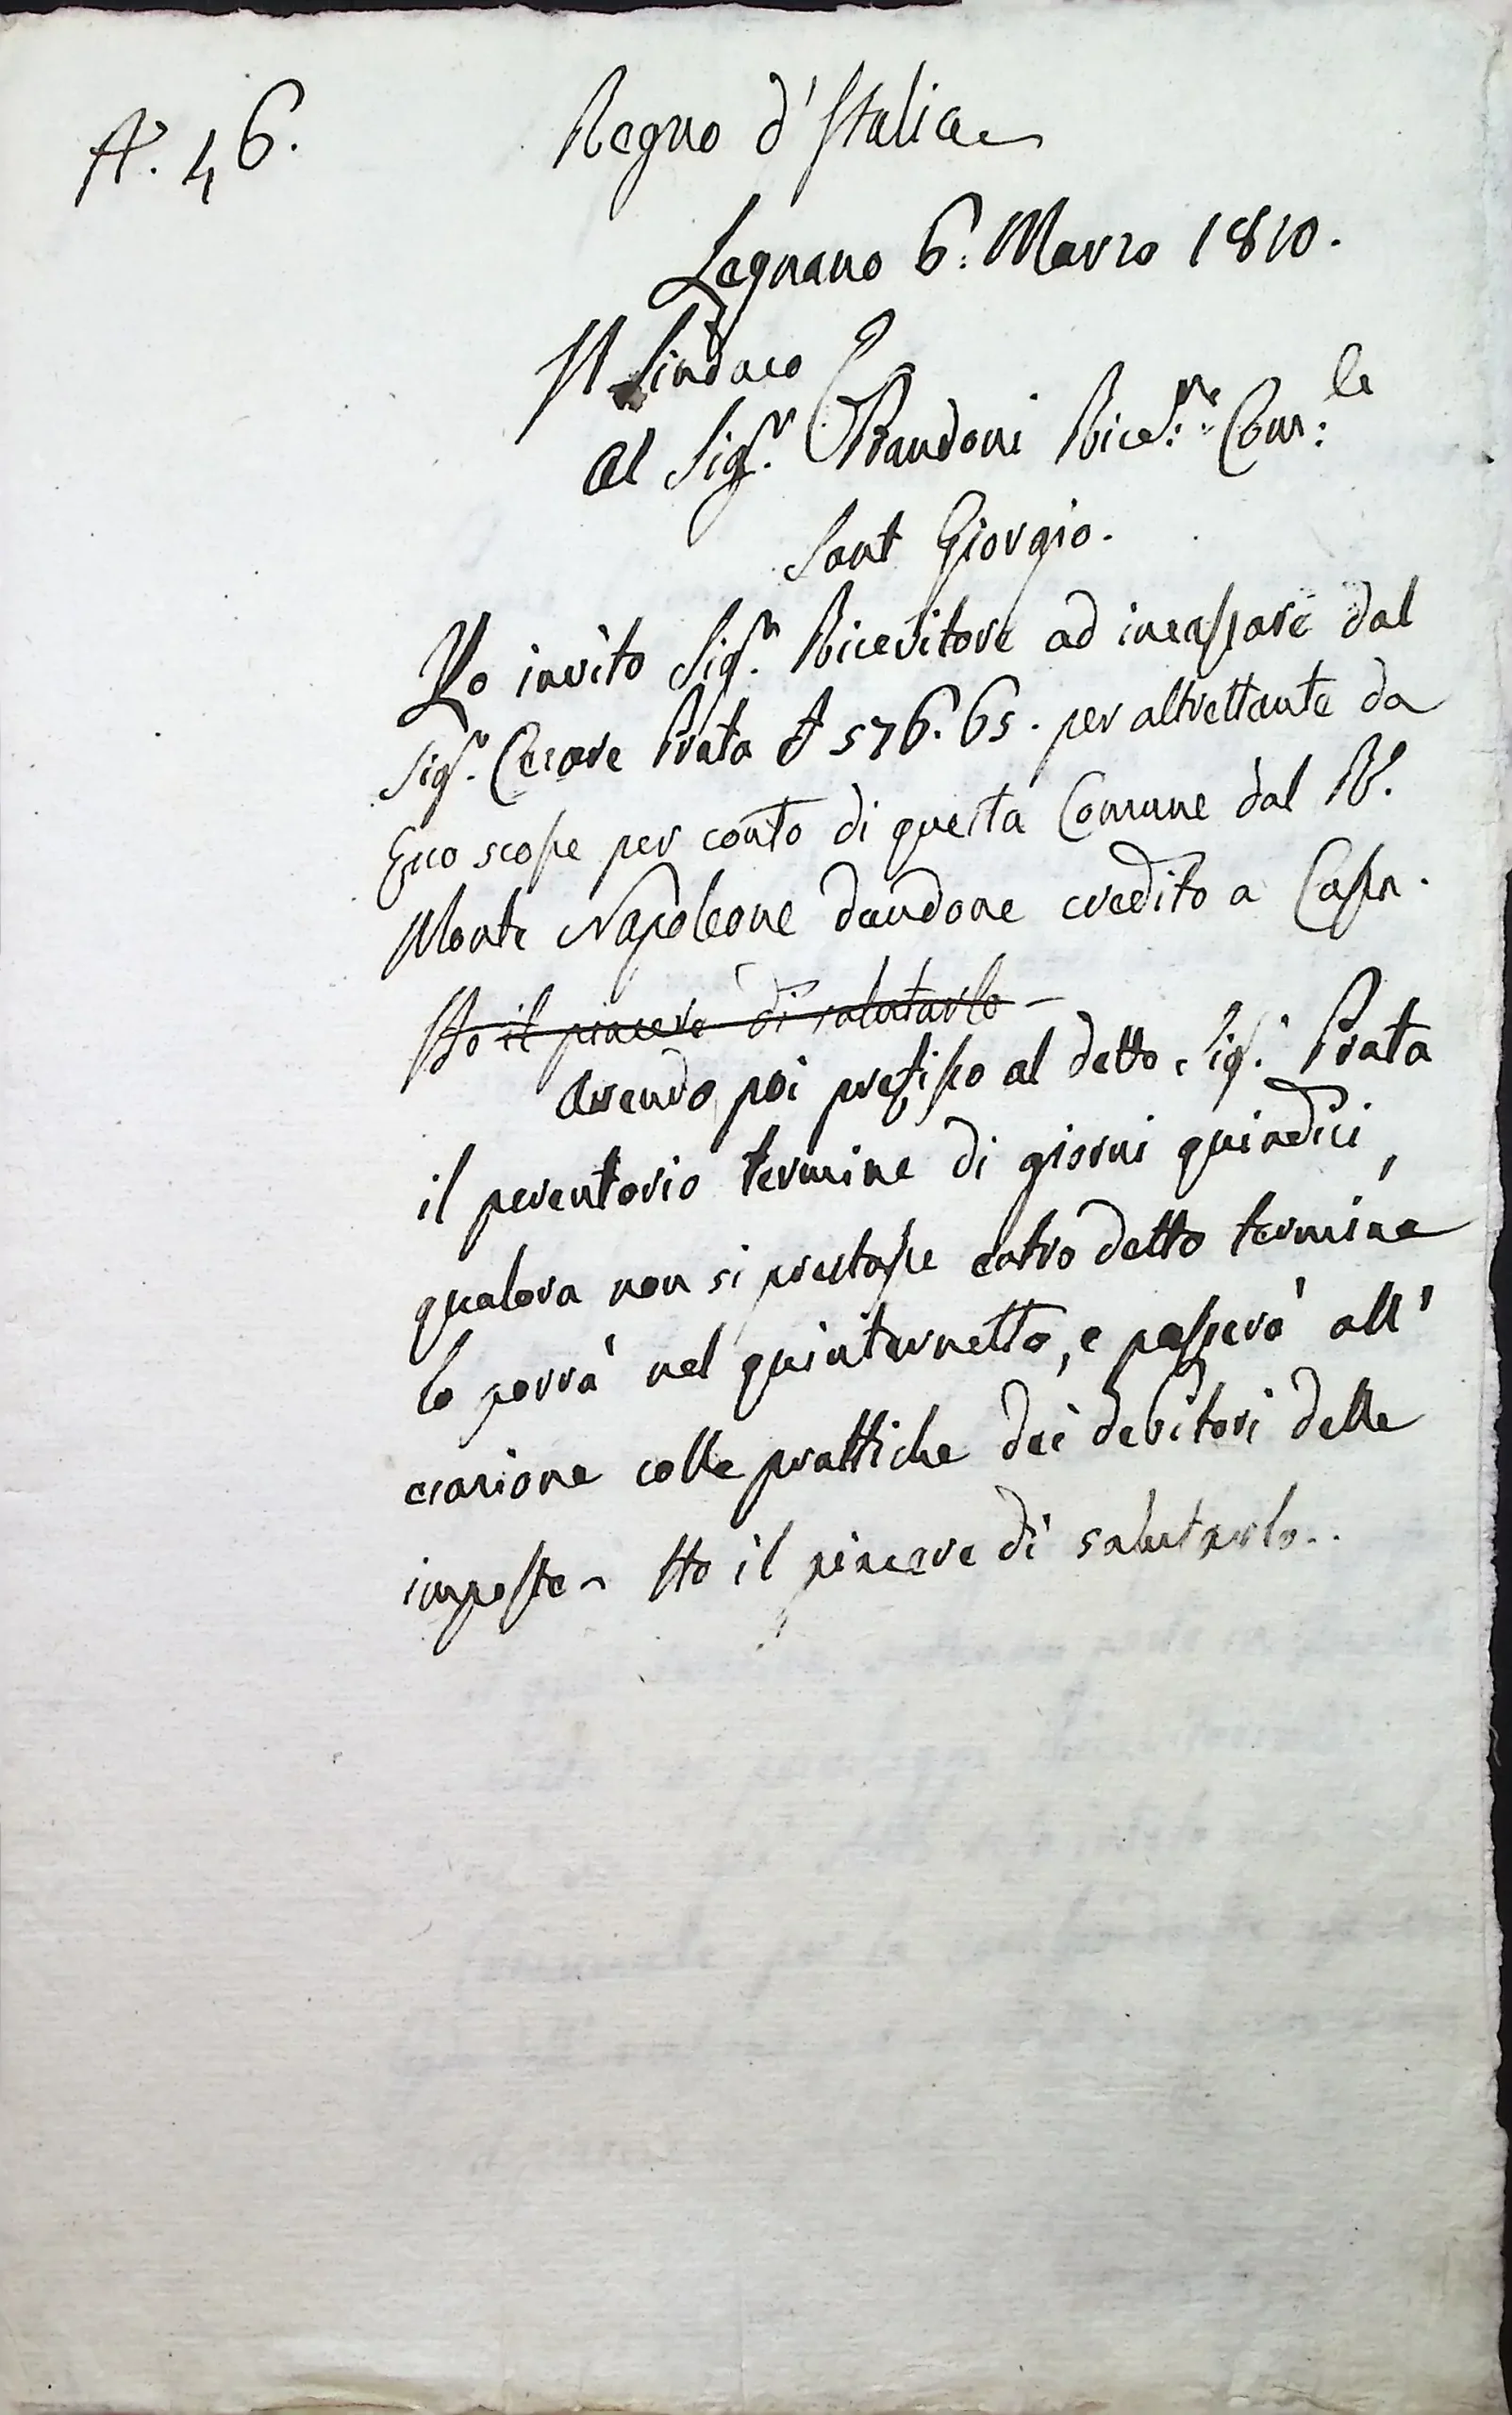 N.° 46.
Regno d'Italia
Legnano 6: Marzo 1810.
Il Sindaco
Al Sig.r Prandoni Ricev.re Com.le
Sant Giorgio.
Lo invito Sig.r Ricevitore ad incassare dal
Sig.r Cesare Prata £ 576. 65. per altrettante da
Esso scosse per conto di questa Comune dal R.°
Monte Napoleone dandone credito a Cassa.
Ho il piacere di salutarlo –
Avendo poi prefisso al detto Sig.r Prata
il perentorio termine di giorni quindici,
qualora non si prestasse entro detto termine
lo porrà nel quinternetto, e passerà all'
esazione colle prattiche dei debitori delle
imposte – Ho il piacere di salutarlo..